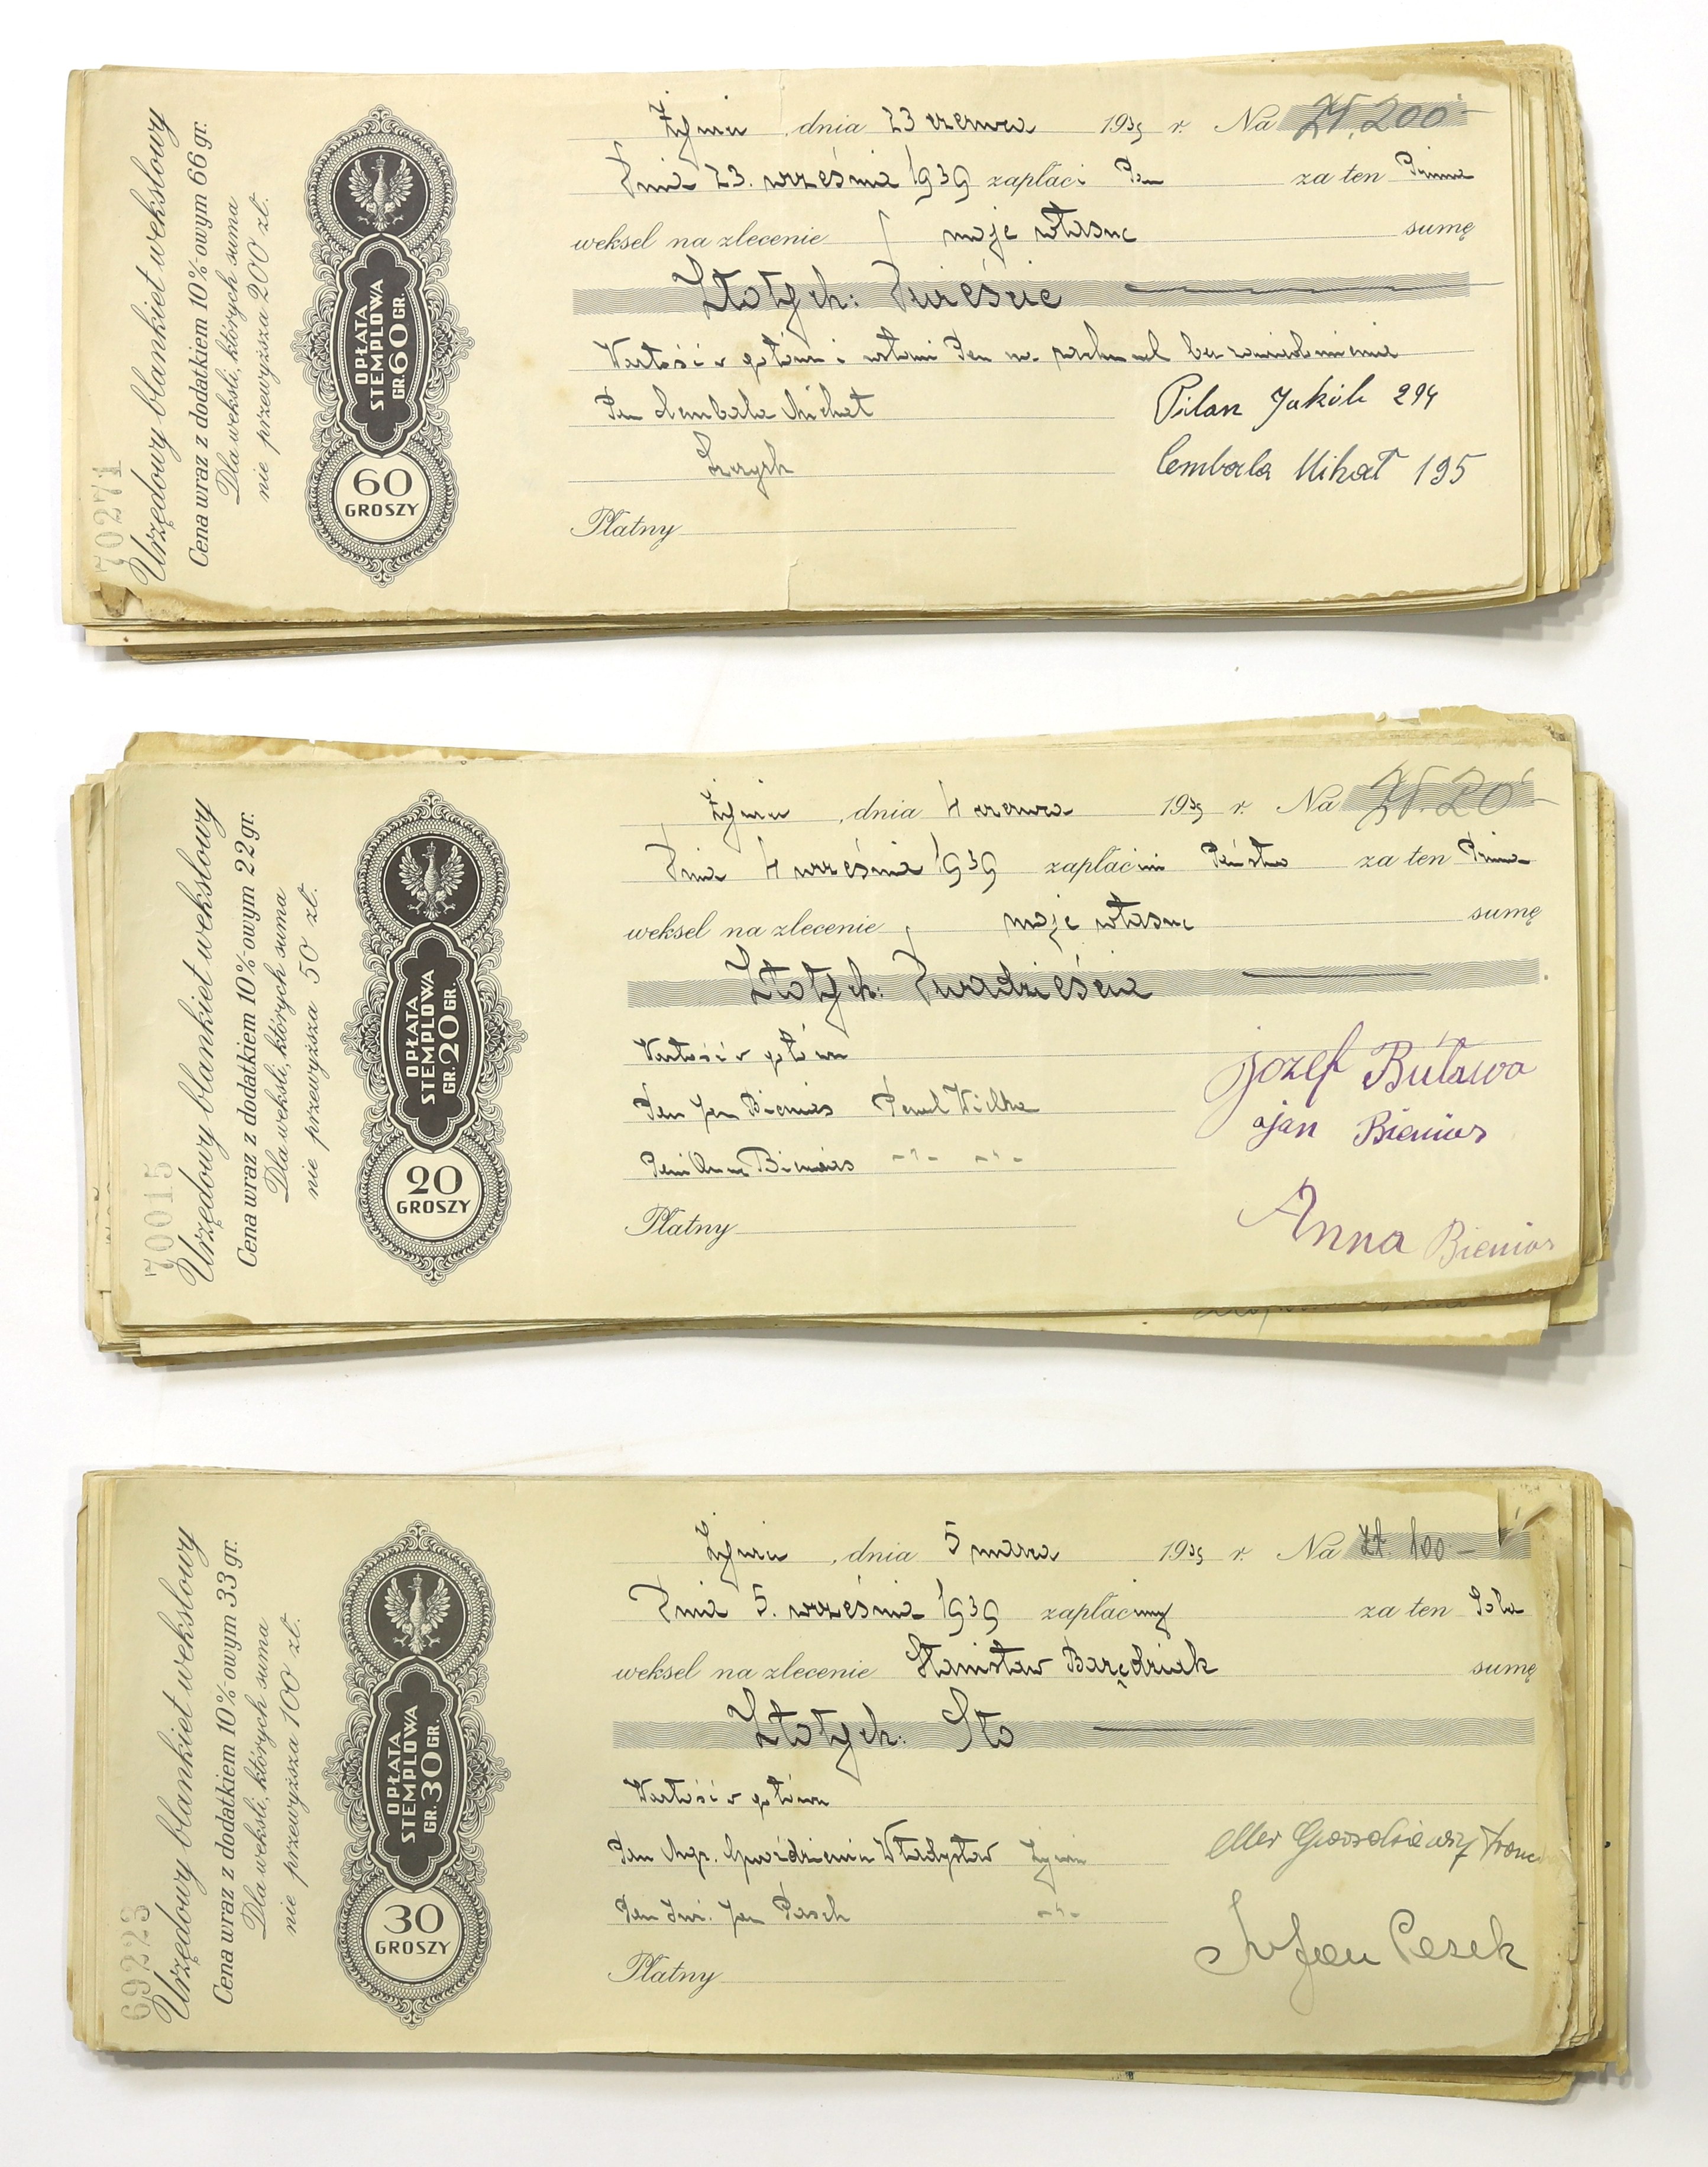 70271
Urzędowy blankiet wekslowy
Cena wraz z dodatkiem 10%-owym 66 gr.
Dla weksli, których suma
nie przewyższa 200 zł.
OPŁATA
STEMPLOWA
GR. 60 GR.
60
GROSZY
dnia 23 czerwca 1939 r. Na Zł. 200
Dnia 23. września 1939 zapłaci Pan za ten Prima
weksel na zlecenie moje własne sumę
Złotych: Dwieście
Wartość w gotów i
Pan Cembala Michał
Pilan Jakób 294
Cembala Mihał 195
Płatny
70015
Urzędowy blankiet wekslowy
Cena wraz z dodatkiem 10%-owym 22 gr.
Dla weksli, których suma
nie przewyższa 50 zł.
OPŁATA
STEMPLOWA
GR. 20 GR.
20
GROSZY
dnia 4 czerwca 1939 r. Na Zł. 20
Dnia 4 września 1939 zapłacini Państwo za ten Prima
weksel na zlecenie moje własne sumę
Złotych: Dwadzieścia
Wartość w gotów
Pan Jan Bienias
Pani Anna Bienias
józef Buława
jan Bienias
Anna Bienias
Płatny
69223
Urzędowy blankiet wekslowy
Cena wraz z dodatkiem 10%-owym 33 gr.
Dla weksli, których suma
nie przewyższa 100 zł.
OPŁATA
STEMPLOWA
GR. 30 GR.
30
GROSZY
dnia 5 marca 1939 r. Na zł. 100
Dnia 5. września 1939 zapłacimy za ten Sola
weksel na zlecenie Stanisław sumę
Złotych: Sto
Wartość w gotów
Pan Mgr. Władysław
Pan Inż. Jan
Jan Pasek
Płatny